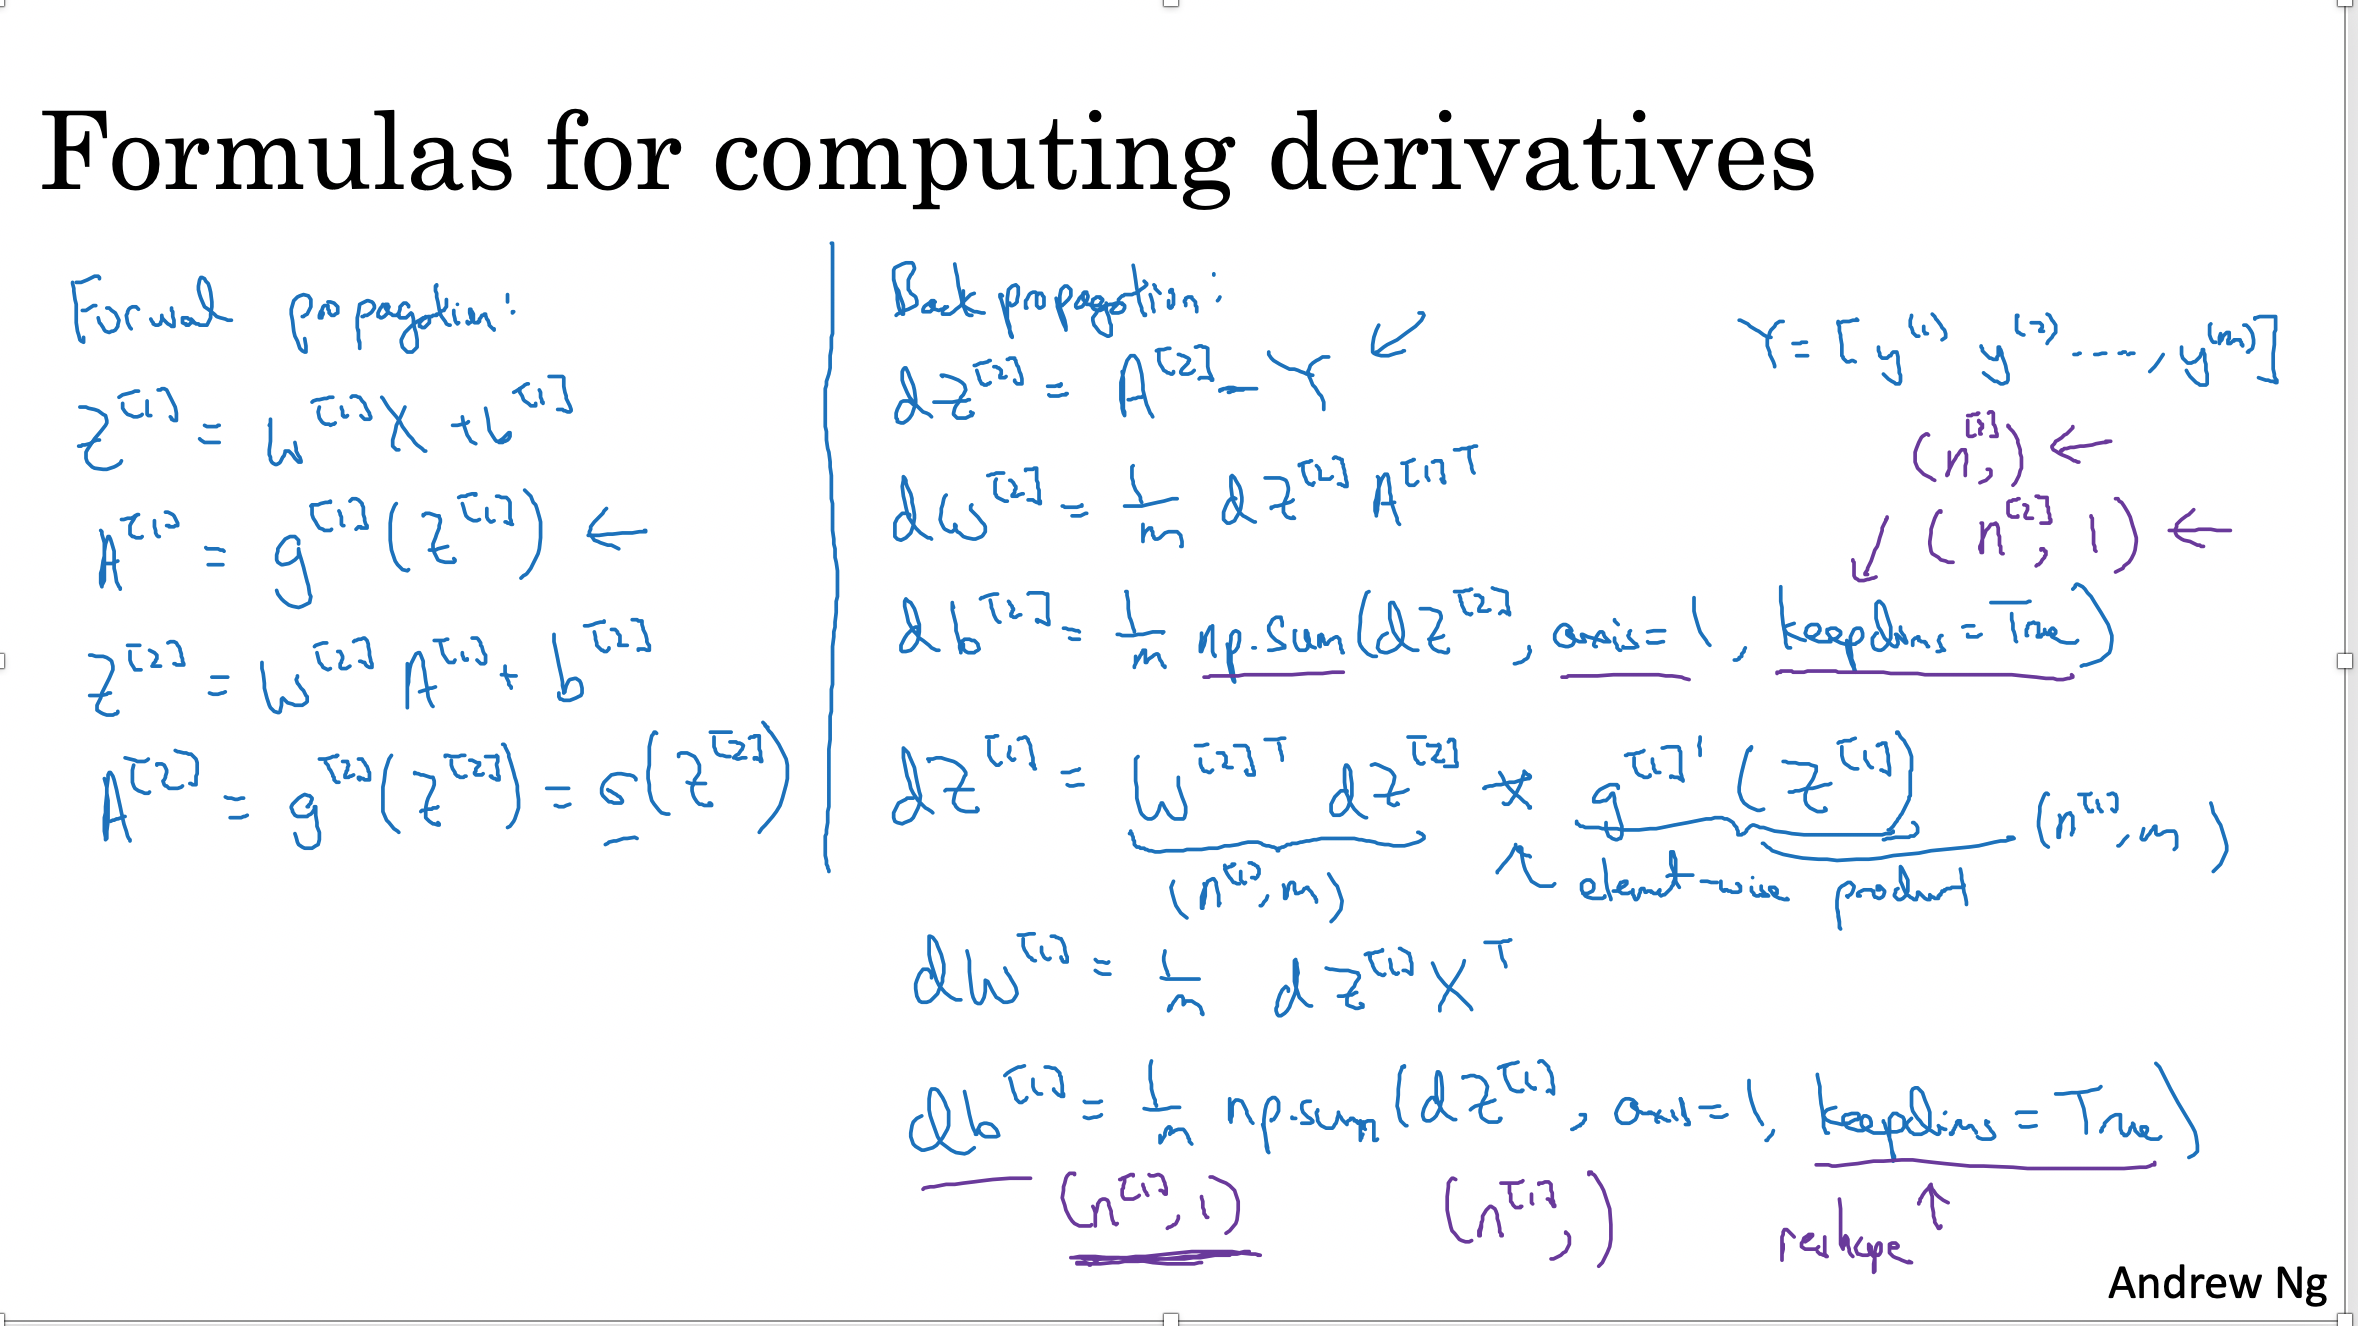 Formulas for computing derivatives
Forwal propagation:
Z^[1] = W^[1] X + b^[1]
A^[1] = g^[1](Z^[1]) ←
Z^[2] = W^[2] A^[1] + b^[2]
A^[2] = g^[2](Z^[2]) = σ(Z^[2])
Back propagation:
dZ^[2] = A^[2] - Y ↙
Y = [y^(1) y^(2) ----, y^(m)]
dW^[2] = 1/m dZ^[2] A^[1]T
(n^[2],) ←
↙ (n^[2], 1) ←
db^[2] = 1/m np.sum(dZ^[2], axis=1, keepdims=True)
dZ^[1] = W^[2]T dZ^[2] * g^[1]'(Z^[1])
(n^[1], m) ↖ element-wise product (n^[1], m)
dW^[1] = 1/m dZ^[1] X^T
db^[1] = 1/m np.sum(dZ^[1], axis=1, keepdims=True)
(n^[1], 1) (n^[1],) reshape ↑
Andrew Ng